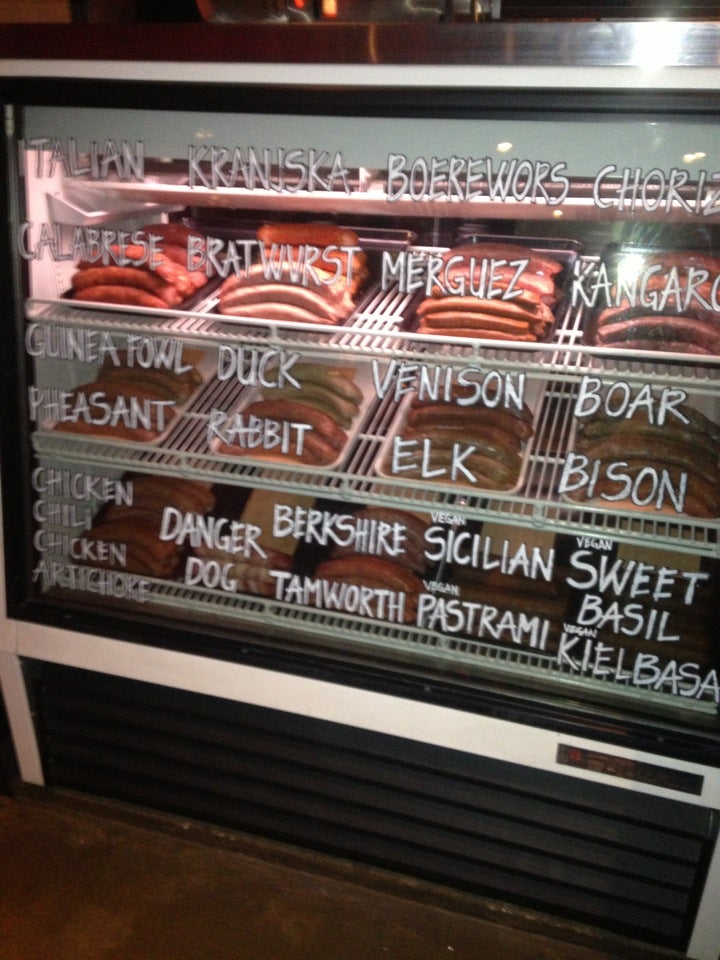 ITALIAN KRANJSKA BOEREWORS CHORIZ
CALABRESE BRATWURST MERGUEZ KANGARO
GUINEA FOWL DUCK VENISON BOAR
PHEASANT RABBIT ELK BISON
CHICKEN CHILI
DANGER DOG
BERKSHIRE
VEGAN SICILIAN
VEGAN SWEET BASIL
CHICKEN ARTICHOKE
TAMWORTH
VEGAN PASTRAMI
VEGAN KIELBASA